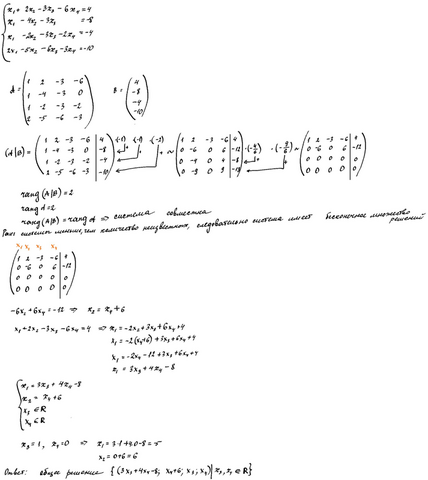 x₁ + 2x₂ - 3x₃ - 6x₄ = 4
x₁ - 4x₂ - 3x₃ = -8
x₁ - 2x₂ - 3x₃ - 2x₄ = -4
2x₁ - 5x₂ - 6x₃ - 3x₄ = -10
A = B =
1 2 -3 -6 4
1 -4 -3 0 -8
1 -2 -3 -2 -4
2 -5 -6 -3 -10
(A|B) = ~ ~
1 2 -3 -6 | 4 ·(-1) ·(-1) ·(-2) 1 2 -3 -6 | 4 1 2 -3 -6 | 4
1 -4 -3 0 | -8 0 -6 0 6 | -12 0 -6 0 6 | -12
1 -2 -3 -2 | -4 0 -4 0 4 | -8 0 0 0 0 | 0
2 -5 -6 -3 | -10 0 -9 0 9 | -18 0 0 0 0 | 0
rang (A|B) = 2
rang A = 2
rang (A|B) = rang A ⇒ система совместна
Ранг системы меньше, чем количество неизвестных, следовательно система имеет бесконечное множество решений
x₁ x₂ x₃ x₄
1 2 -3 -6 | 4
0 -6 0 6 | -12
0 0 0 0 | 0
0 0 0 0 | 0
-6x₂ + 6x₄ = -12 ⇒ x₂ = x₄ + 6
x₁ + 2x₂ - 3x₃ - 6x₄ = 4 ⇒ x₁ = -2x₂ + 3x₃ + 6x₄ + 4
x₁ = -2(x₄+6) + 3x₃ + 6x₄ + 4
x₁ = -2x₄ - 12 + 3x₃ + 6x₄ + 4
x₁ = 3x₃ + 4x₄ - 8
x₁ = 3x₃ + 4x₄ - 8
x₂ = x₄ + 6
x₃ ∈ R
x₄ ∈ R
x₃ = 1, x₄ = 0 ⇒ x₁ = 3·1 + 4·0 - 8 = -5
x₂ = 0 + 6 = 6
Ответ: общее решение {(3x₃ + 4x₄ - 8; x₄ + 6; x₃; x₄) | x₃, x₄ ∈ R}